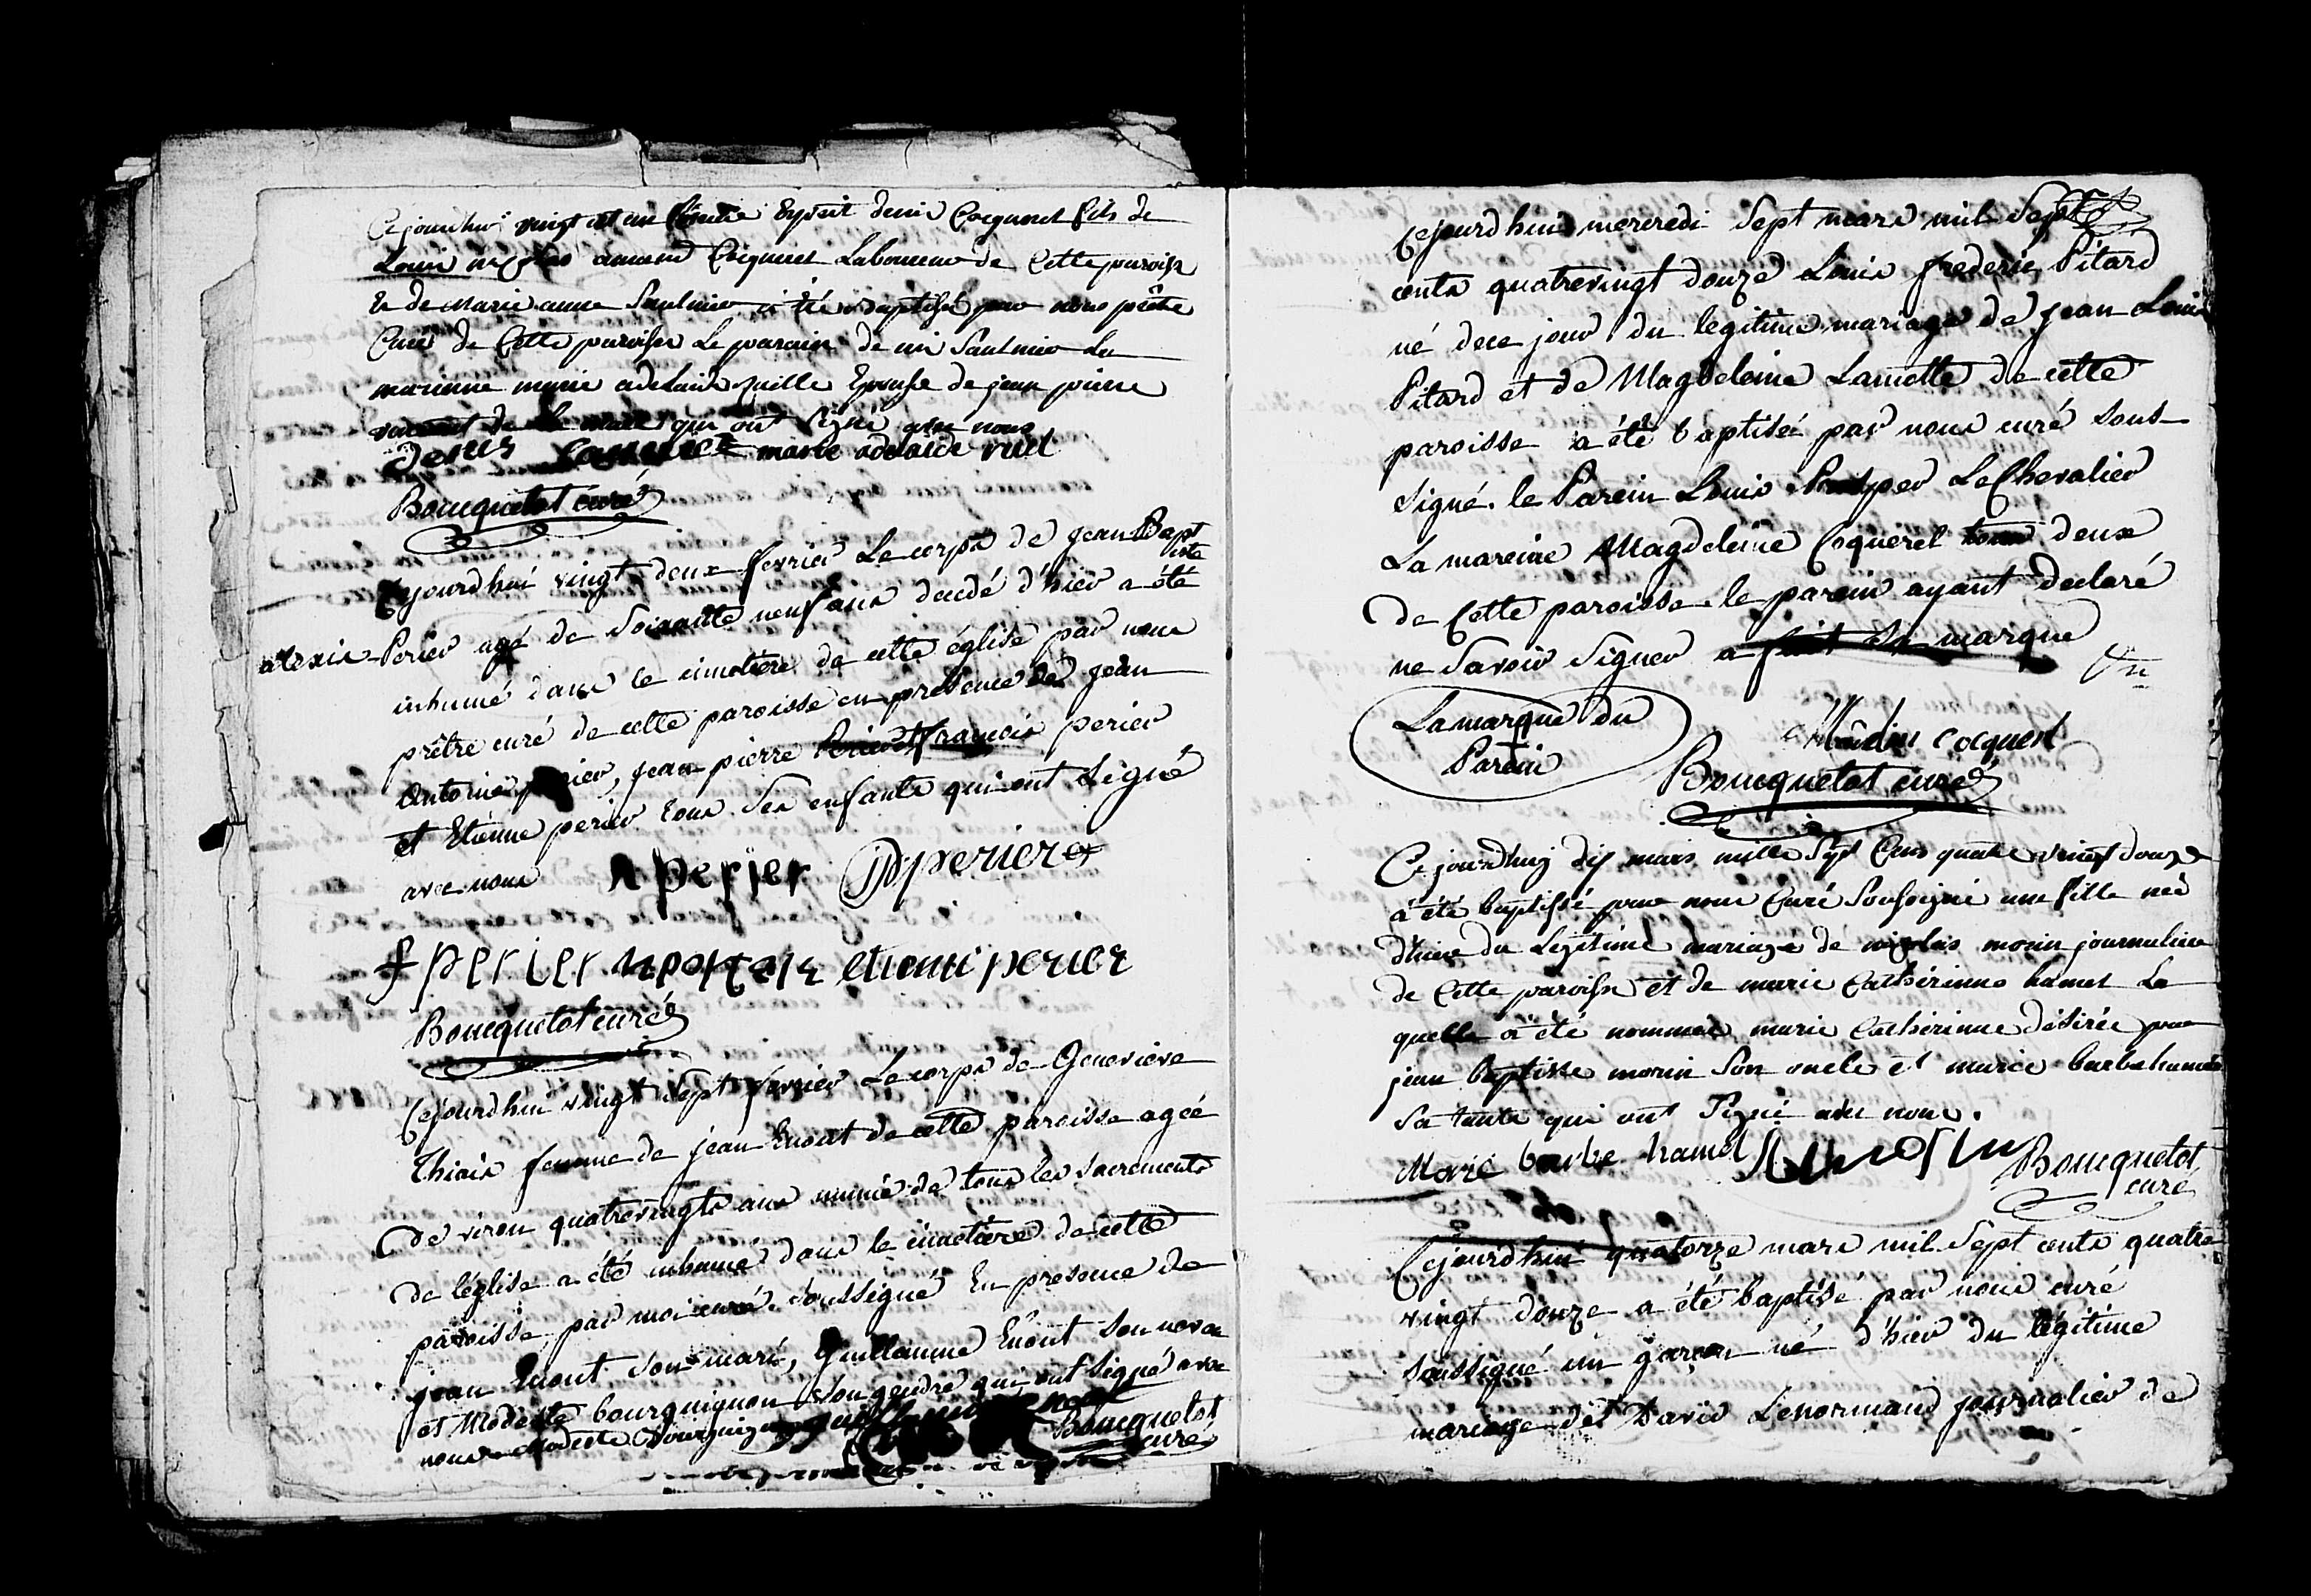 Cejourdhui vingt et un Esprit denis Cocquerel fils de
Louis amand Cocquerel Laboureur de Cette paroisse
Et de Marie anne Saulnier a été baptisé par nous prêtre
Curé de Cette paroisse Le parain denis Saulnier La
maraine marie adelaide Epouse de jean pierre
qui ont Signé avec nous
denis marie adelaide ruel
Boucquetot curé
Cejourdhui vingt deux fevrier Le corps de jean Bapt
iste
alexis Perier agé de Soixante neuf ans decedé d'hier a été
inhumé dans le cimetiere de cette église par nous
prêtre curé de cette paroisse en presence de jean
Antoine perier, jean pierre françois perier
et Etienne perier tous Ses enfants qui ont Signé
avec nous A perier JPperier
f perier etienne perier
Boucquetot curé
Cejourdhui vingt Sept fevrier Le corps de Genevieve
Thiais femme de jean Enout de cette paroisse agée
de viron quatrevingts ans munie de tous les sacrements
de léglise a été inhumé dans le cimetiere de cette
paroisse par moi curé Soussigné En presence de
jean Enout Son mari, Guillaume Enout Son neveu
et Modeste bourguignon Son gendre qui ont Signé avec
nous Modeste Bourguignon Boucquetot
curé
Cejourdhui mercredi Sept mars mil Sept
cents quatrevingt douze Louis frederic Pitard
né dece jour du legitime mariage de jean Louis
Pitard et de Magdeleine Lamette de cette
paroisse a été baptisé par nous curé Sous
Signé. le Parein Louis Prosper LeChevalier
La mareine Magdeleine Coquerel deux
de Cette paroisse. le parein ayant declaré
ne Savoir Signer a fait Sa marque
La marque du
Parein
cocquerel
Boucquetot curé
Ce jourdhuy dix mars mille Sept Cens quatre vingt douze
a été baptissé par nous Curé Sousigné une fille née
dhier du Legitime mariage de nicolas morin journalier
de Cette paroisse et de marie Catherinne hamel La
quelle a été nommée marie Catherinne désirée par
jean baptiste morin Son oncle et marie barbe hamel
Sa tante qui ont Signé avec nous.
Marie barbe hamel Morin Boucquetot
curé
Cejourdhui quatorze mars mil Sept cents quatre
vingt douze a été baptisé par nous curé
Soussigné un garçon né d'hier du légitime
mariage de David Lenormand journalier de